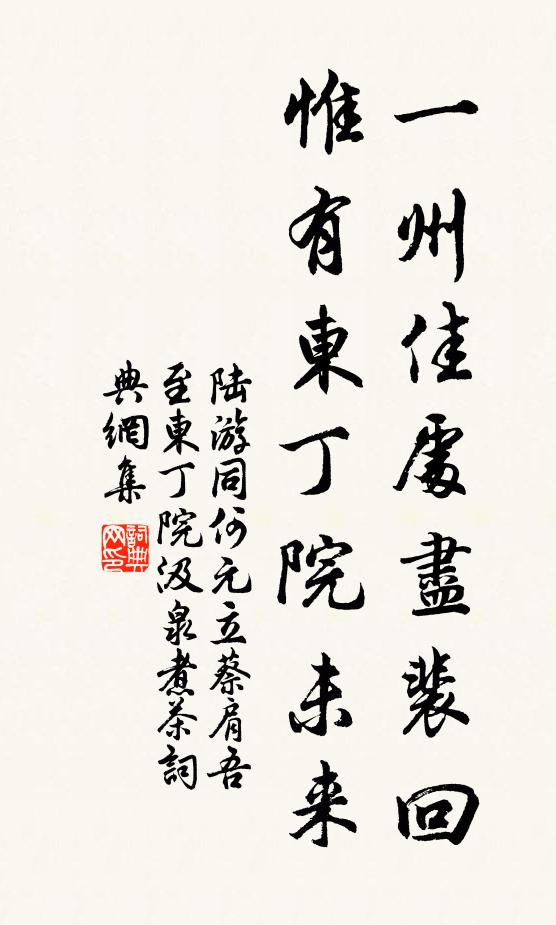 一州佳處盡裴回
惟有東丁院未来
陸游同何元立蔡肩吾
至東丁院汲泉煮茶詞
典網集
詞典
网印